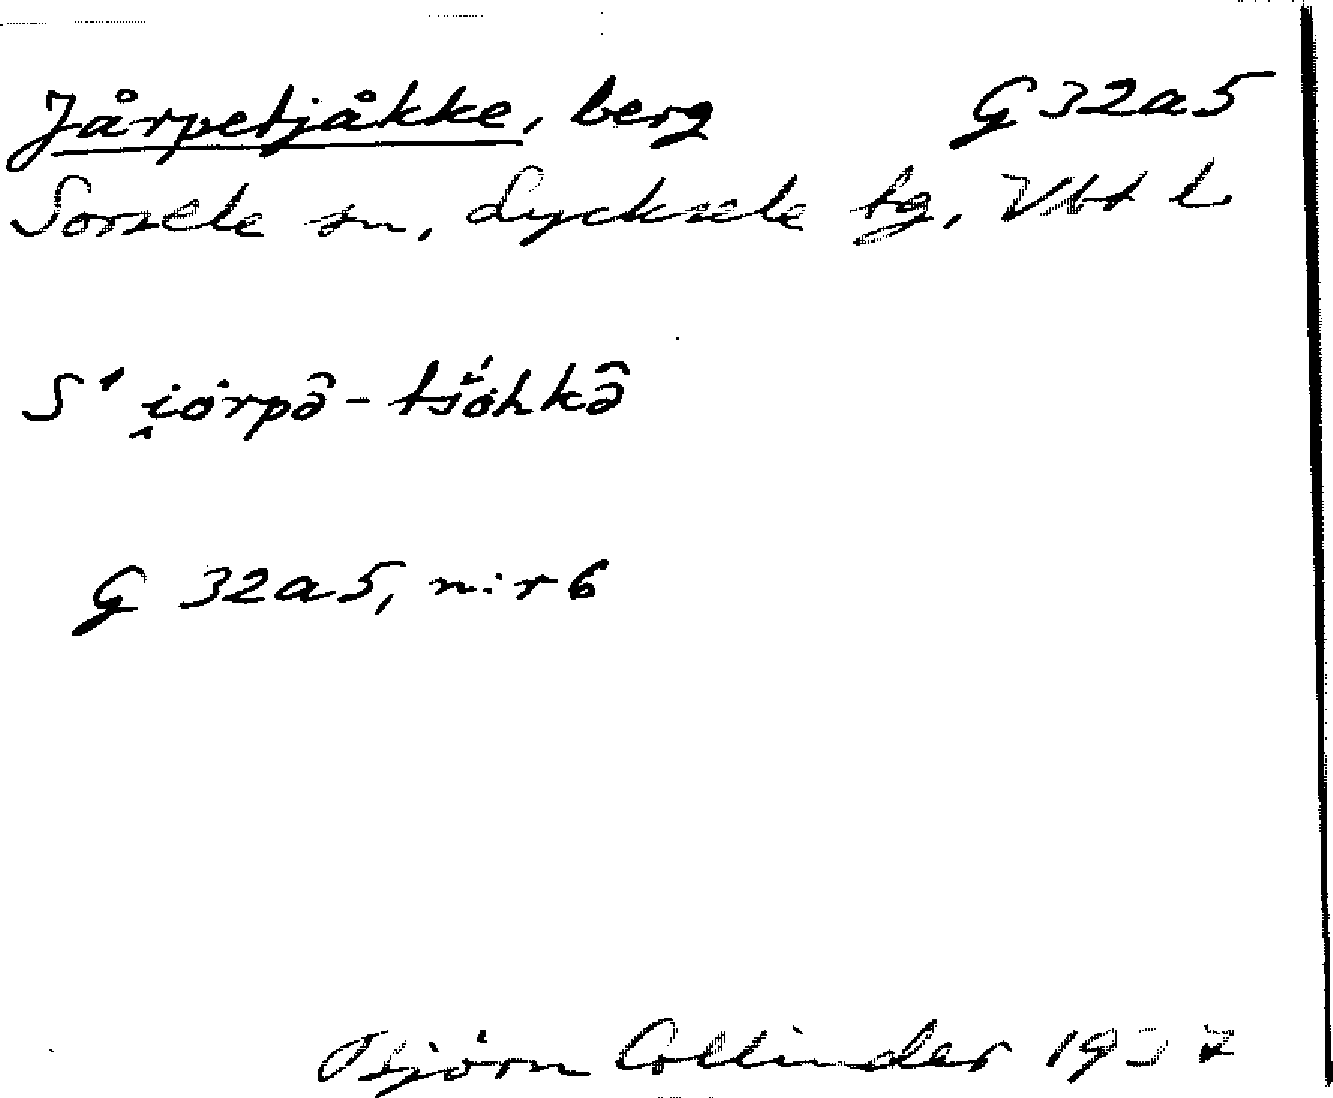 Jårpetjåkke, berg G 32a5
Sorsele sn, Lycksele tg, Vbt l
S' i̯ȯrpȃ - tšȯ́hkȃ
G 32a5, n:r 6
Björn Collinder 1937